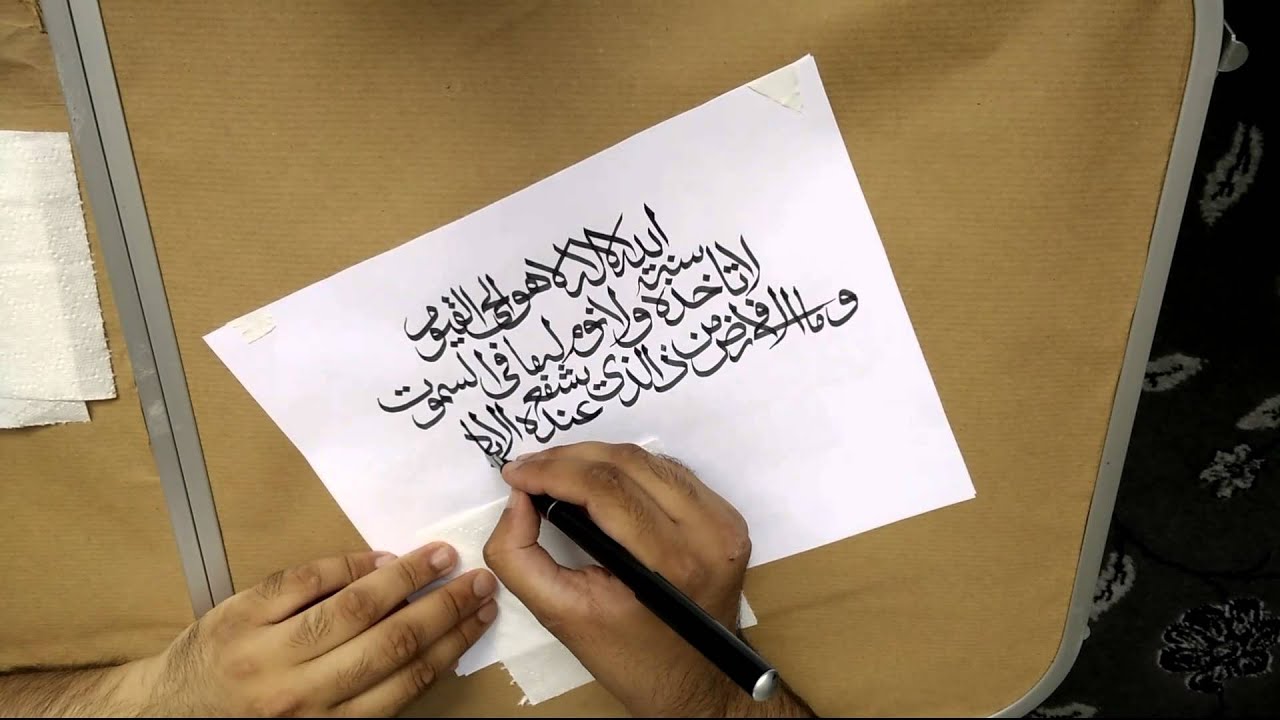 الله لا اله الا هو الحي القيوم
لا تاخذه سنة ولا نوم له ما فى السموت
وما فى الارض من ذا الذي يشفع
عنده الا